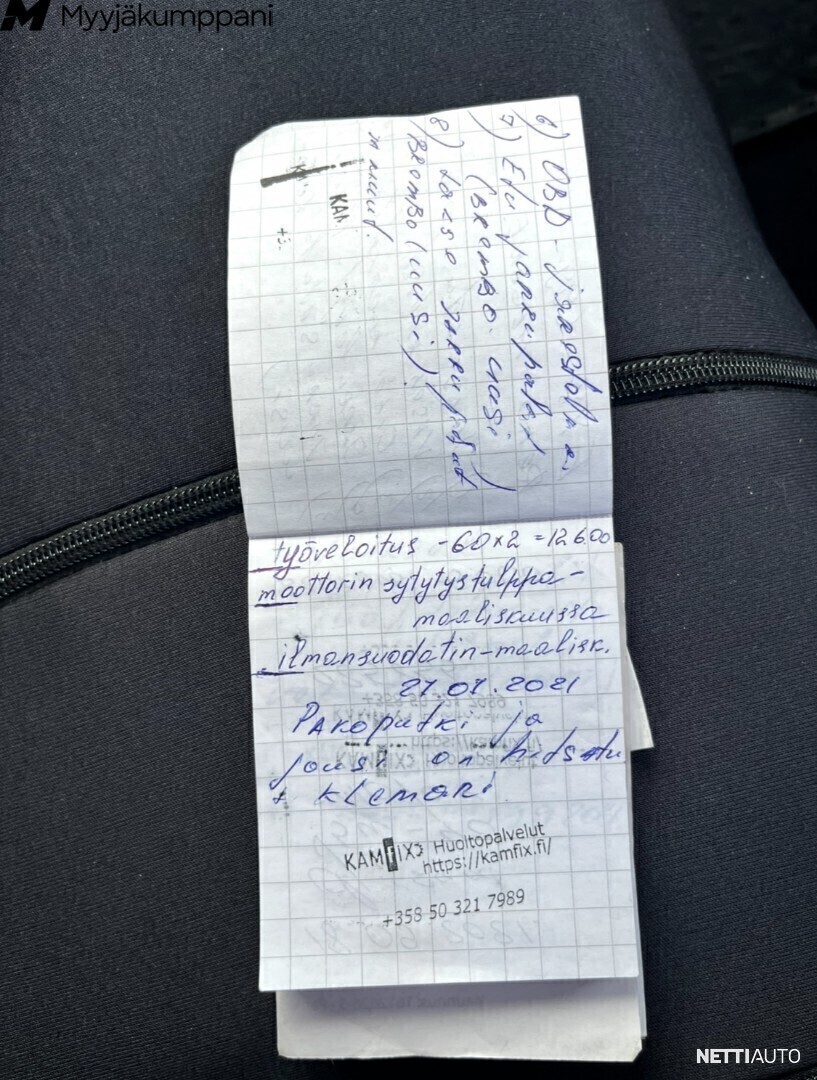 Myyjäkumppani
6) OBD - järjestelmä.
7) Etu jarrupalat
(BREMBO uusi)
8) taka jarru
BREMBO (uusi)
KAM
työveloitus -60x2 =12600
moottorin sytytystulppa-
maaliskuussa
ilmansuodatin-maalisk.
27.07.2021
Pakoputki ja
jousi on hitsattu
+ klemari
KAMfIX Huoltopalvelut
https://kamfix.fi/
+358 50 321 7989
NETTIAUTO